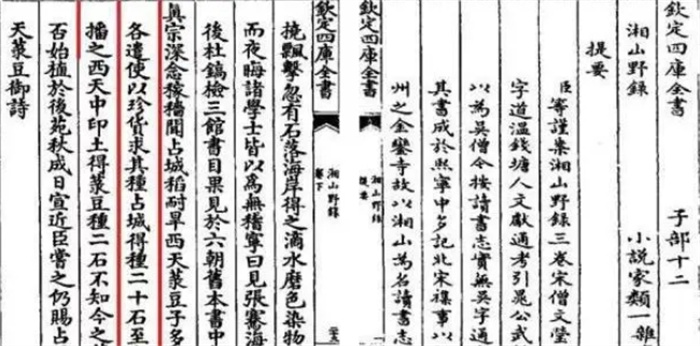 欽定四庫全書 子部十二
湘山野録 小説家類一雜
提要
臣等謹案湘山野録三卷宋僧文瑩
字道温錢塘人文獻通考引晁公武
以為吳僧今按讀書志實無吳字通
其書成於熙寧中多記北宋襍事以
州之金鑾寺故以湘山為名讀書志
欽定四庫全書
湘山野録
提要
欽定四庫全書
湘山野録
卷下
撓飄擊忽有石落海岸得之滴水磨色染物
而夜晦諸學士皆以為無稽寧曰見張騫海
後杜鎬檢三館書目果見於六朝舊本書中
真宗深念稼穡聞占城稻耐旱西天菉豆子多
各遣使以珍貨求其種占城得種二十石至
播之西天中印土得菉豆種二石不知今之
否始植於後苑秋成日宣近臣嘗之仍賜占
天菉豆御詩